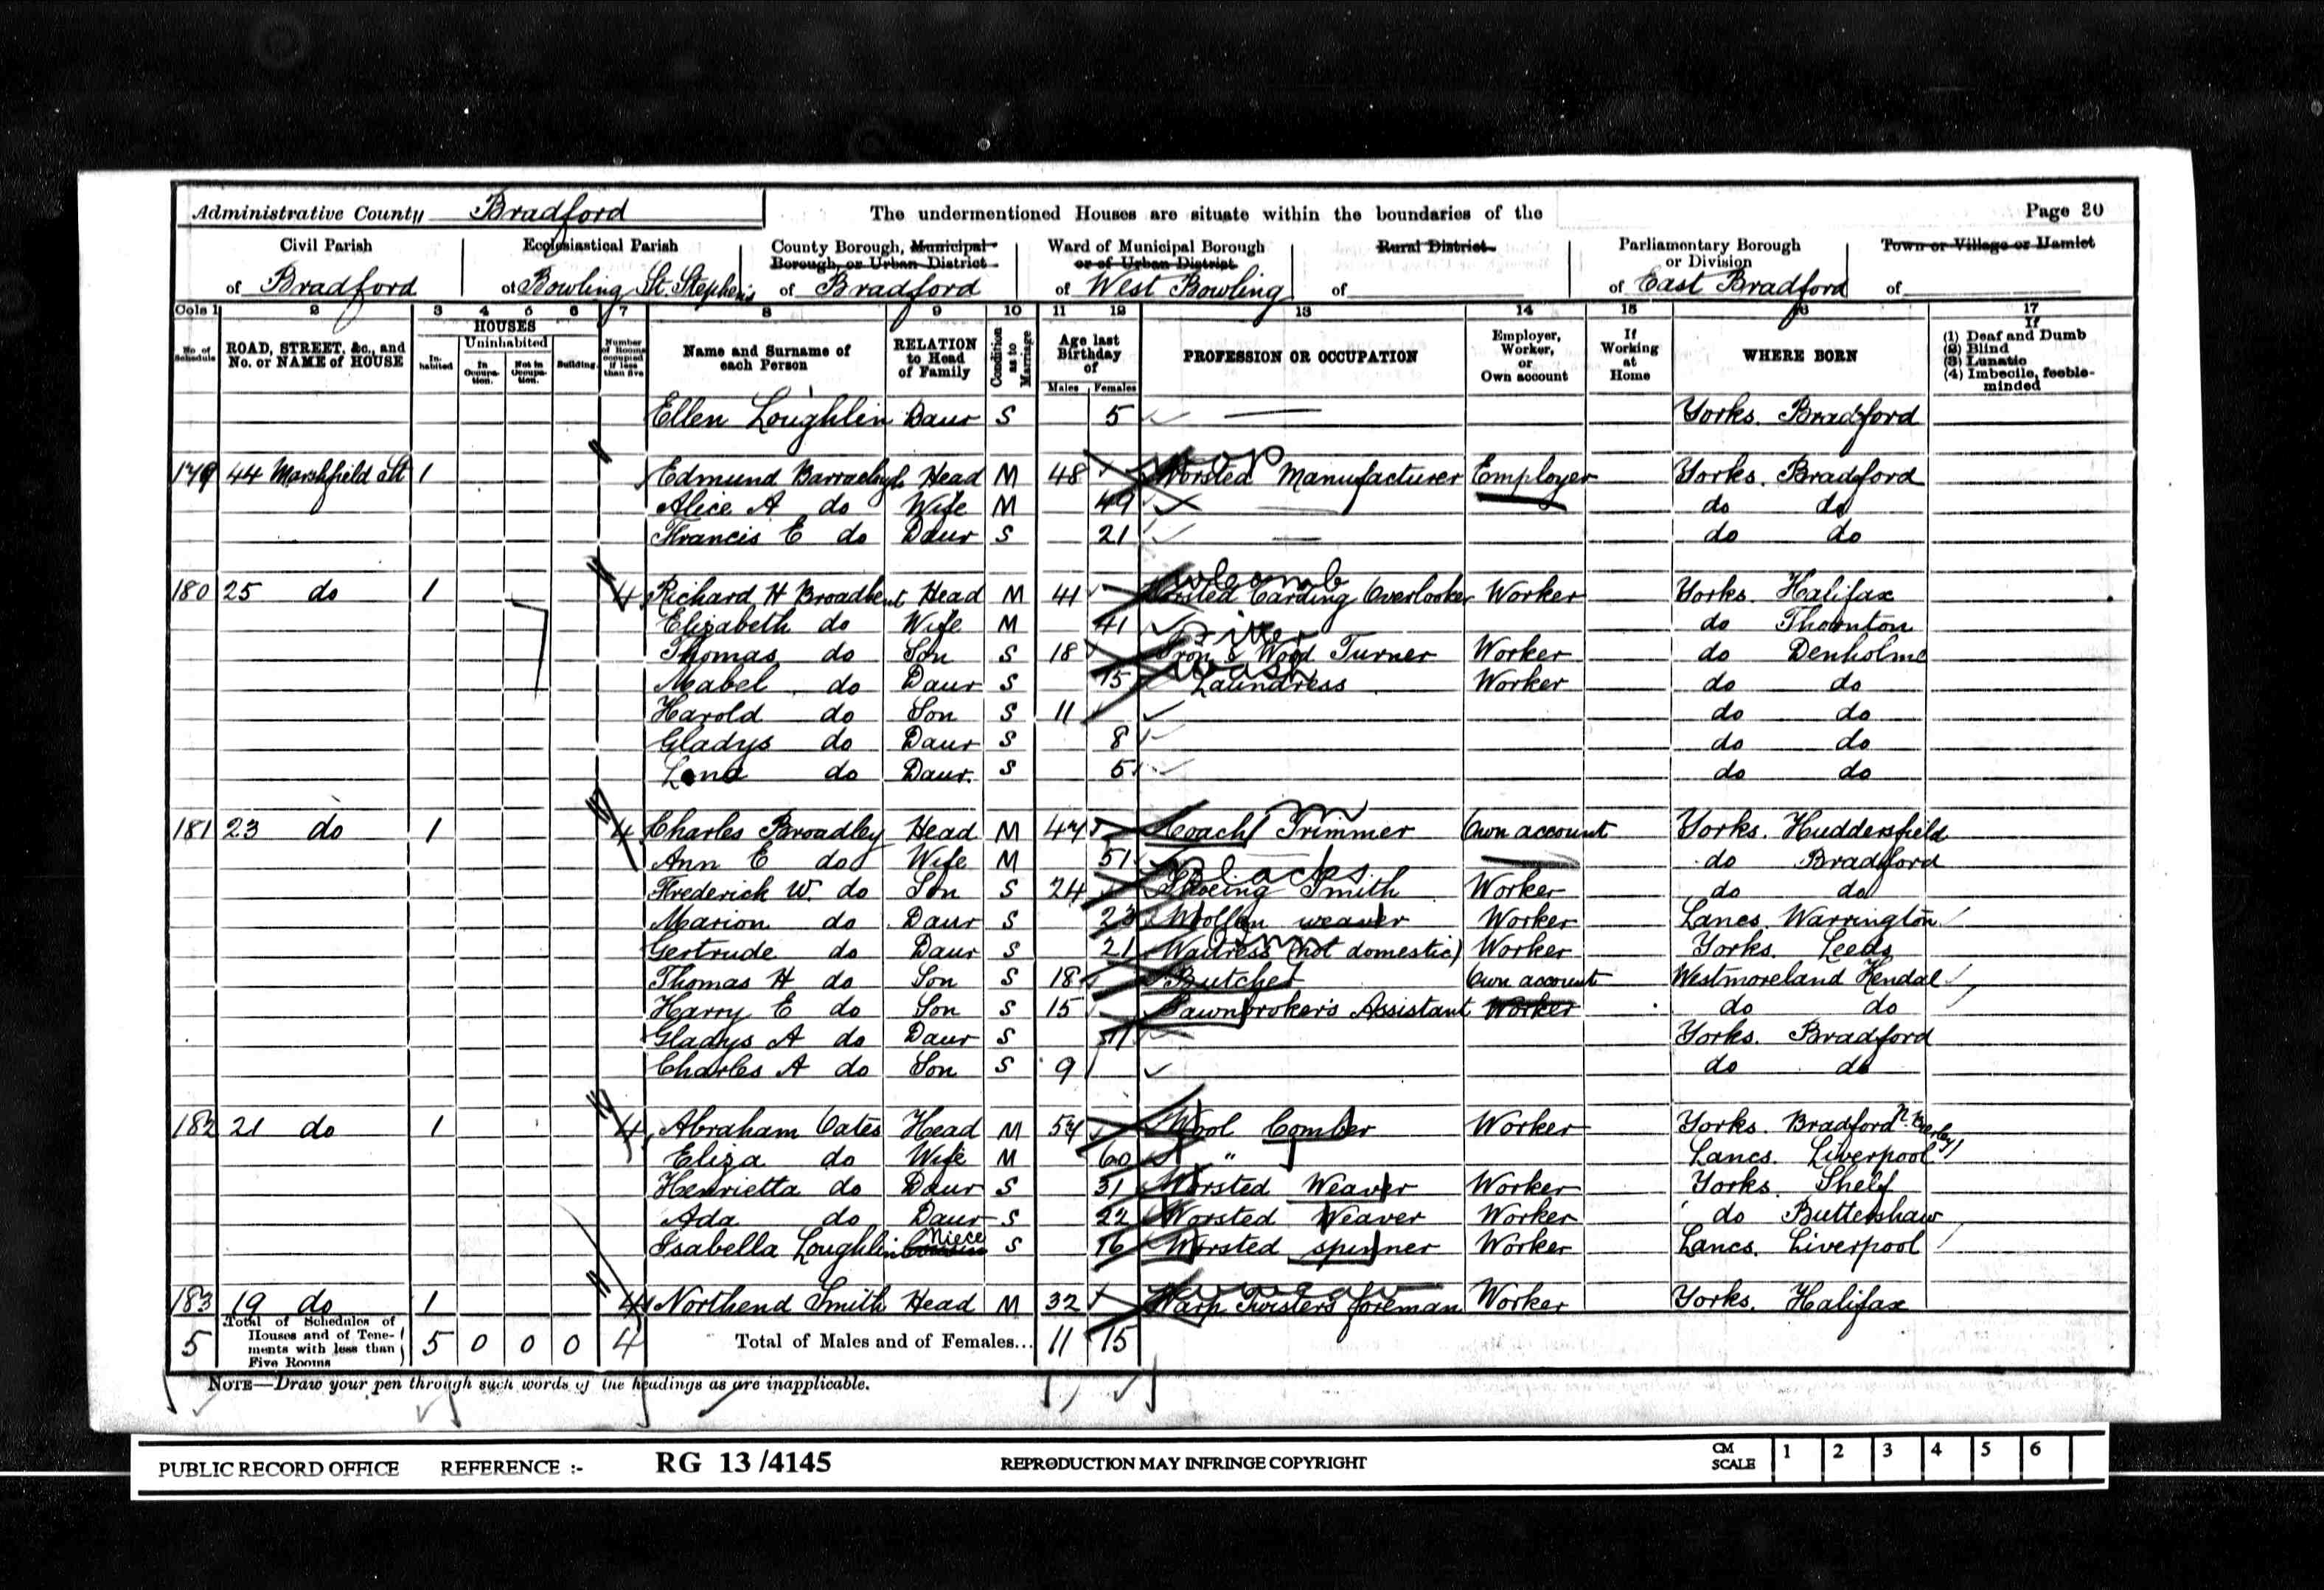 Administrative County Bradford The undermentioned Houses are situate within the boundaries of the Page 30
Civil Parish Ecclesiastical Parish County Borough, Municipal Ward of Municipal Borough Rural District Parliamentary Borough Town or Village or Hamlet
Borough, or Urban District or of Urban District or Division
of Bradford of Bowling St. Stephens of Bradford of West Bowling of of East Bradford of
Cols 1 2 3 4 5 6 7 8 9 10 11 12 13 14 15 16 17
No. of Schedule ROAD, STREET, &c., and No. or NAME of HOUSE HOUSES Inhabited Uninhabited In Occupation. Not in Occupation. Building Number of Rooms occupied if less than five Name and Surname of each Person RELATION to Head of Family Condition as to Marriage Age last Birthday of Males Females PROFESSION OR OCCUPATION Employer, Worker, or Own account If Working at Home WHERE BORN If (1) Deaf and Dumb (2) Blind (3) Lunatic (4) Imbecile, feeble-minded
Ellen Loughlin Daur S 5 Yorks. Bradford
179 44 Marshfield St 1 Edmund Barraclough Head M 48 Worsted Manufacturer Employer Yorks. Bradford
Alice A do Wife M 49 do do
Francis E do Daur S 21 do do
180 25 do 1 4 Richard H Broadbent Head M 41 Worsted Carding Overlooker Worker Yorks. Halifax
Elizabeth do Wife M 41 do Thornton
Thomas do Son S 18 Iron & Wood Turner Worker do Denholme
Mabel do Daur S 15 Laundress Worker do do
Harold do Son S 11 do do
Gladys do Daur S 8 do do
do Daur. S 5 do do
181 23 do 1 4 Charles Broadley Head M 47 Coach Trimmer Own account Yorks. Huddersfield
Ann E do Wife M 51 do Bradford
Frederick W. do Son S 24 Shoeing Smith Worker do do
Marion do Daur S 23 Wollen weaver Worker Lancs. Warrington
Gertrude do Daur S 21 Waitress (not domestic) Worker Yorks. Leeds
Thomas H do Son S 18 Butcher Own account Westmoreland Kendal
Harry E do Son S 15 Pawnbroker's Assistant Worker do do
Gladys A do Daur S 11 Yorks. Bradford
Charles A do Son S 9 do do
182 21 do 1 4 Abraham Oates Head M 54 Wool Comber Worker Yorks. Bradford N. Bierley
Eliza do Wife M 60 " Lancs. Liverpool
Henrietta do Daur S 31 Worsted Weaver Worker Yorks. Shelf
Ada do Daur S 22 Worsted Weaver Worker do Buttershaw
Isabella Loughlin Niece S 16 Worsted spinner Worker Lancs. Liverpool
183 19 do 1 4 Northend Smith Head M 32 Warp Twisters foreman Worker Yorks. Halifax
5 Total of Schedules of Houses and of Tenements with less than Five Rooms 5 0 0 0 4 Total of Males and of Females... 11 15
NOTE—Draw your pen through such words of the headings as are inapplicable.
PUBLIC RECORD OFFICE REFERENCE :- RG 13/4145 REPRODUCTION MAY INFRINGE COPYRIGHT CM SCALE 1 2 3 4 5 6